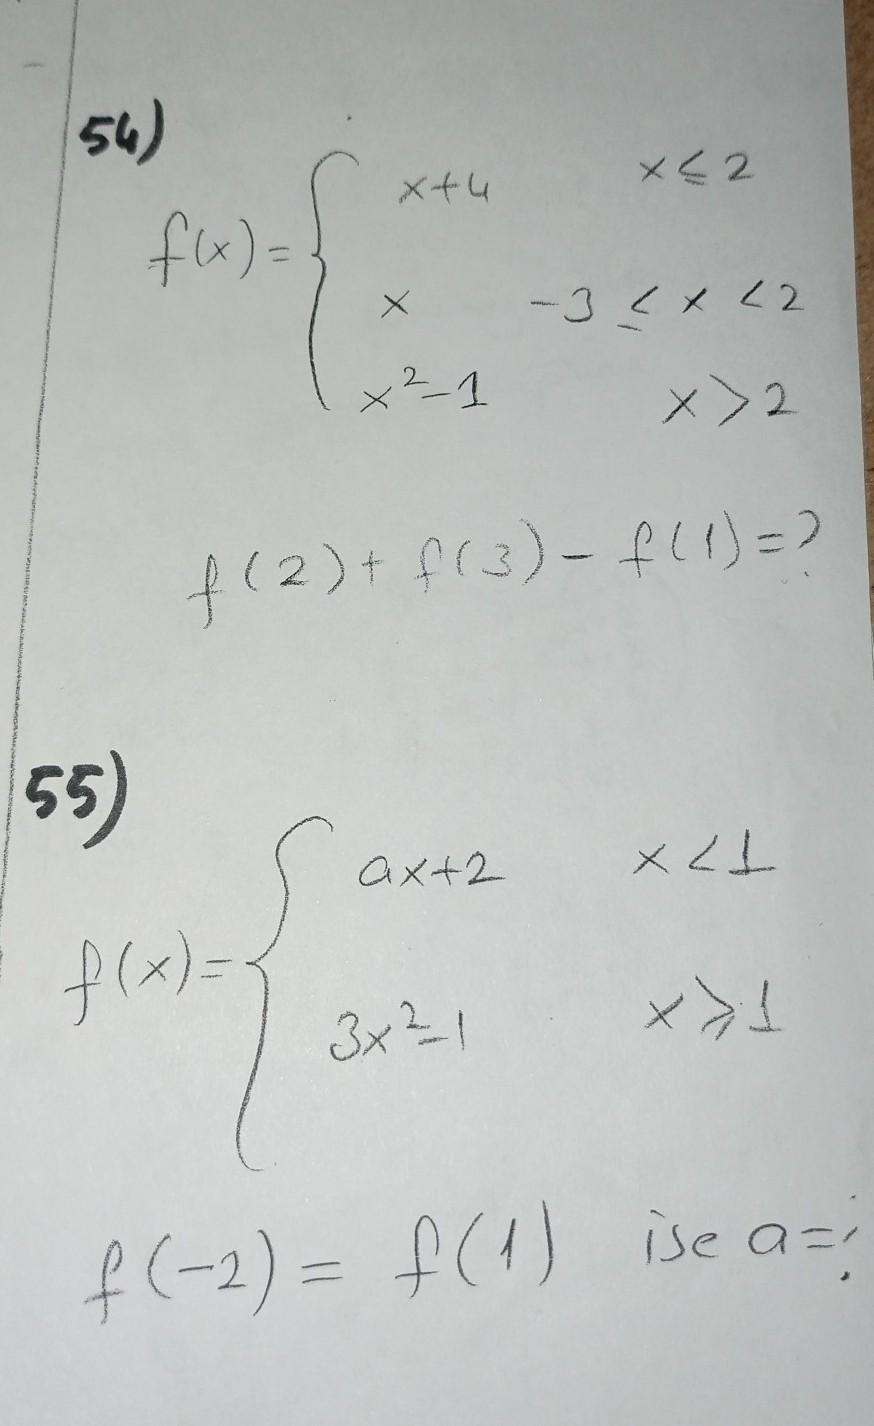 54)
x+4 x≤2
f(x)=
x -3≤x<2
x²-1 x>2
f(2)+f(3)-f(1)=?
55)
ax+2 x<1
f(x)=
3x²-1 x≥1
f(-2)=f(1) ise a=?